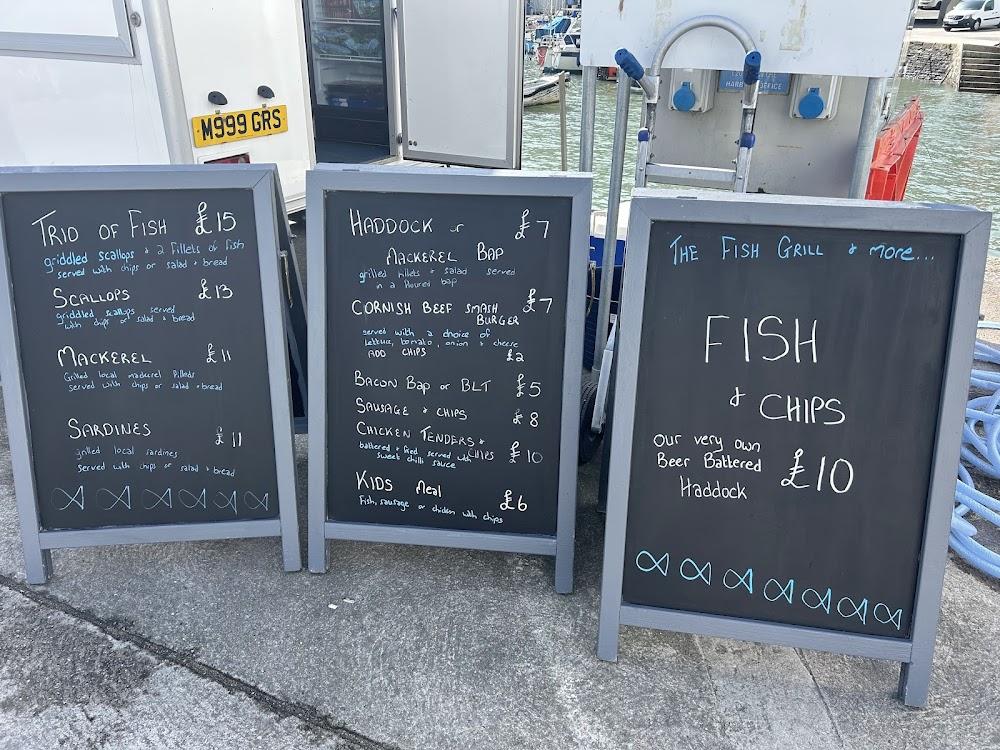 M999 GRS
HARBOUR OFFICE
TRIO OF FISH £15
griddled scallops + 2 fillets of fish
served with chips or salad + bread
SCALLOPS £13
griddled scallops served
with chips or salad + bread
MACKEREL £11
Grilled local mackerel fillets
served with chips or salad + bread
SARDINES £11
grilled local sardines
served with chips or salad + bread
HADDOCK or £7
MACKEREL BAP
grilled fillets + salad served
in a floured bap
CORNISH BEEF SMASH £7
BURGER
served with a choice of
lettuce, tomato, onion + cheese
ADD CHIPS £2
BACON BAP or BLT £5
SAUSAGE + CHIPS £8
CHICKEN TENDERS +
CHIPS £10
battered + fried served with
sweet chilli sauce
KIDS Meal £6
Fish, sausage or chicken with chips
THE FISH GRILL + more...
FISH
+ CHIPS
our very own
Beer Battered £10
Haddock